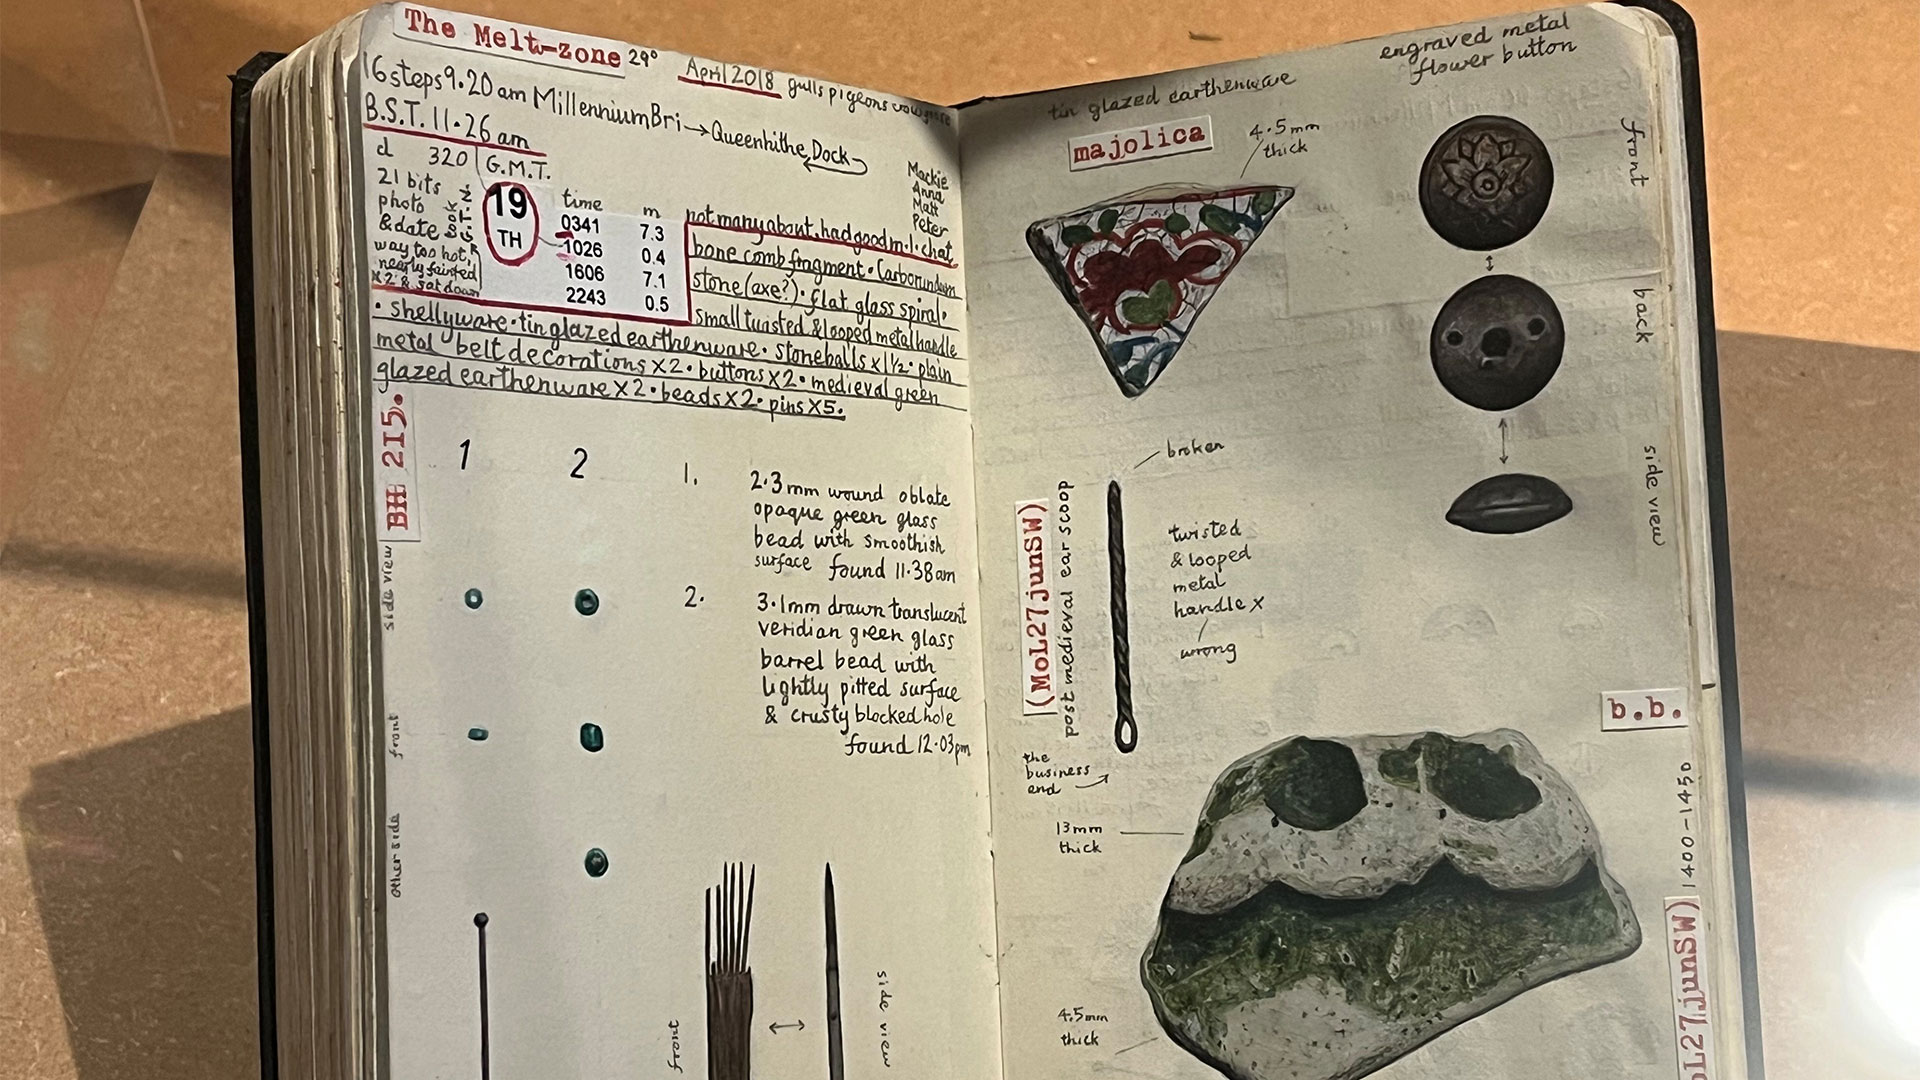 The Melt-zone 29° April 2018 gulls pigeons
16 steps 9.20 am Millennium Bri → Queenhithe Dock
B.S.T. 11.26 am
d 320 G.M.T.
21 bits
photo
& date
way too hot,
nearly fainted
x2 & sat down
19
TH
time m
0341 7.3
1026 0.4
1606 7.1
2243 0.5
Mackie
Anna
Matt
Peter
not many about, had good m.l. chat
bone comb fragment • Carborundum
stone (axe?) • flat glass spiral •
small twisted & looped metal handle
• shellyware • tin glazed earthenware • stoneballs x 1½ • plain
metal belt decorations x2 • buttons x2 • medieval green
glazed earthenware x2 • beads x2 • pins x5.
BH 215.
1 2
side view
front
other side
1. 2.3mm wound oblate
opaque green glass
bead with smoothish
surface found 11.38am
2. 3.1mm drawn translucent
veridian green glass
barrel bead with
lightly pitted surface
& crusty blocked hole
found 12.03pm
front
side view
tin glazed earthenware
majolica
4.5mm
thick
engraved metal
flower button
front
back
side view
broken
(MoL27junSW)
post medieval ear scoop
twisted
& looped
metal
handle x
wrong
the
business
end
b.b.
1400-1450
13mm
thick
4.5mm
thick
oL27junSW)